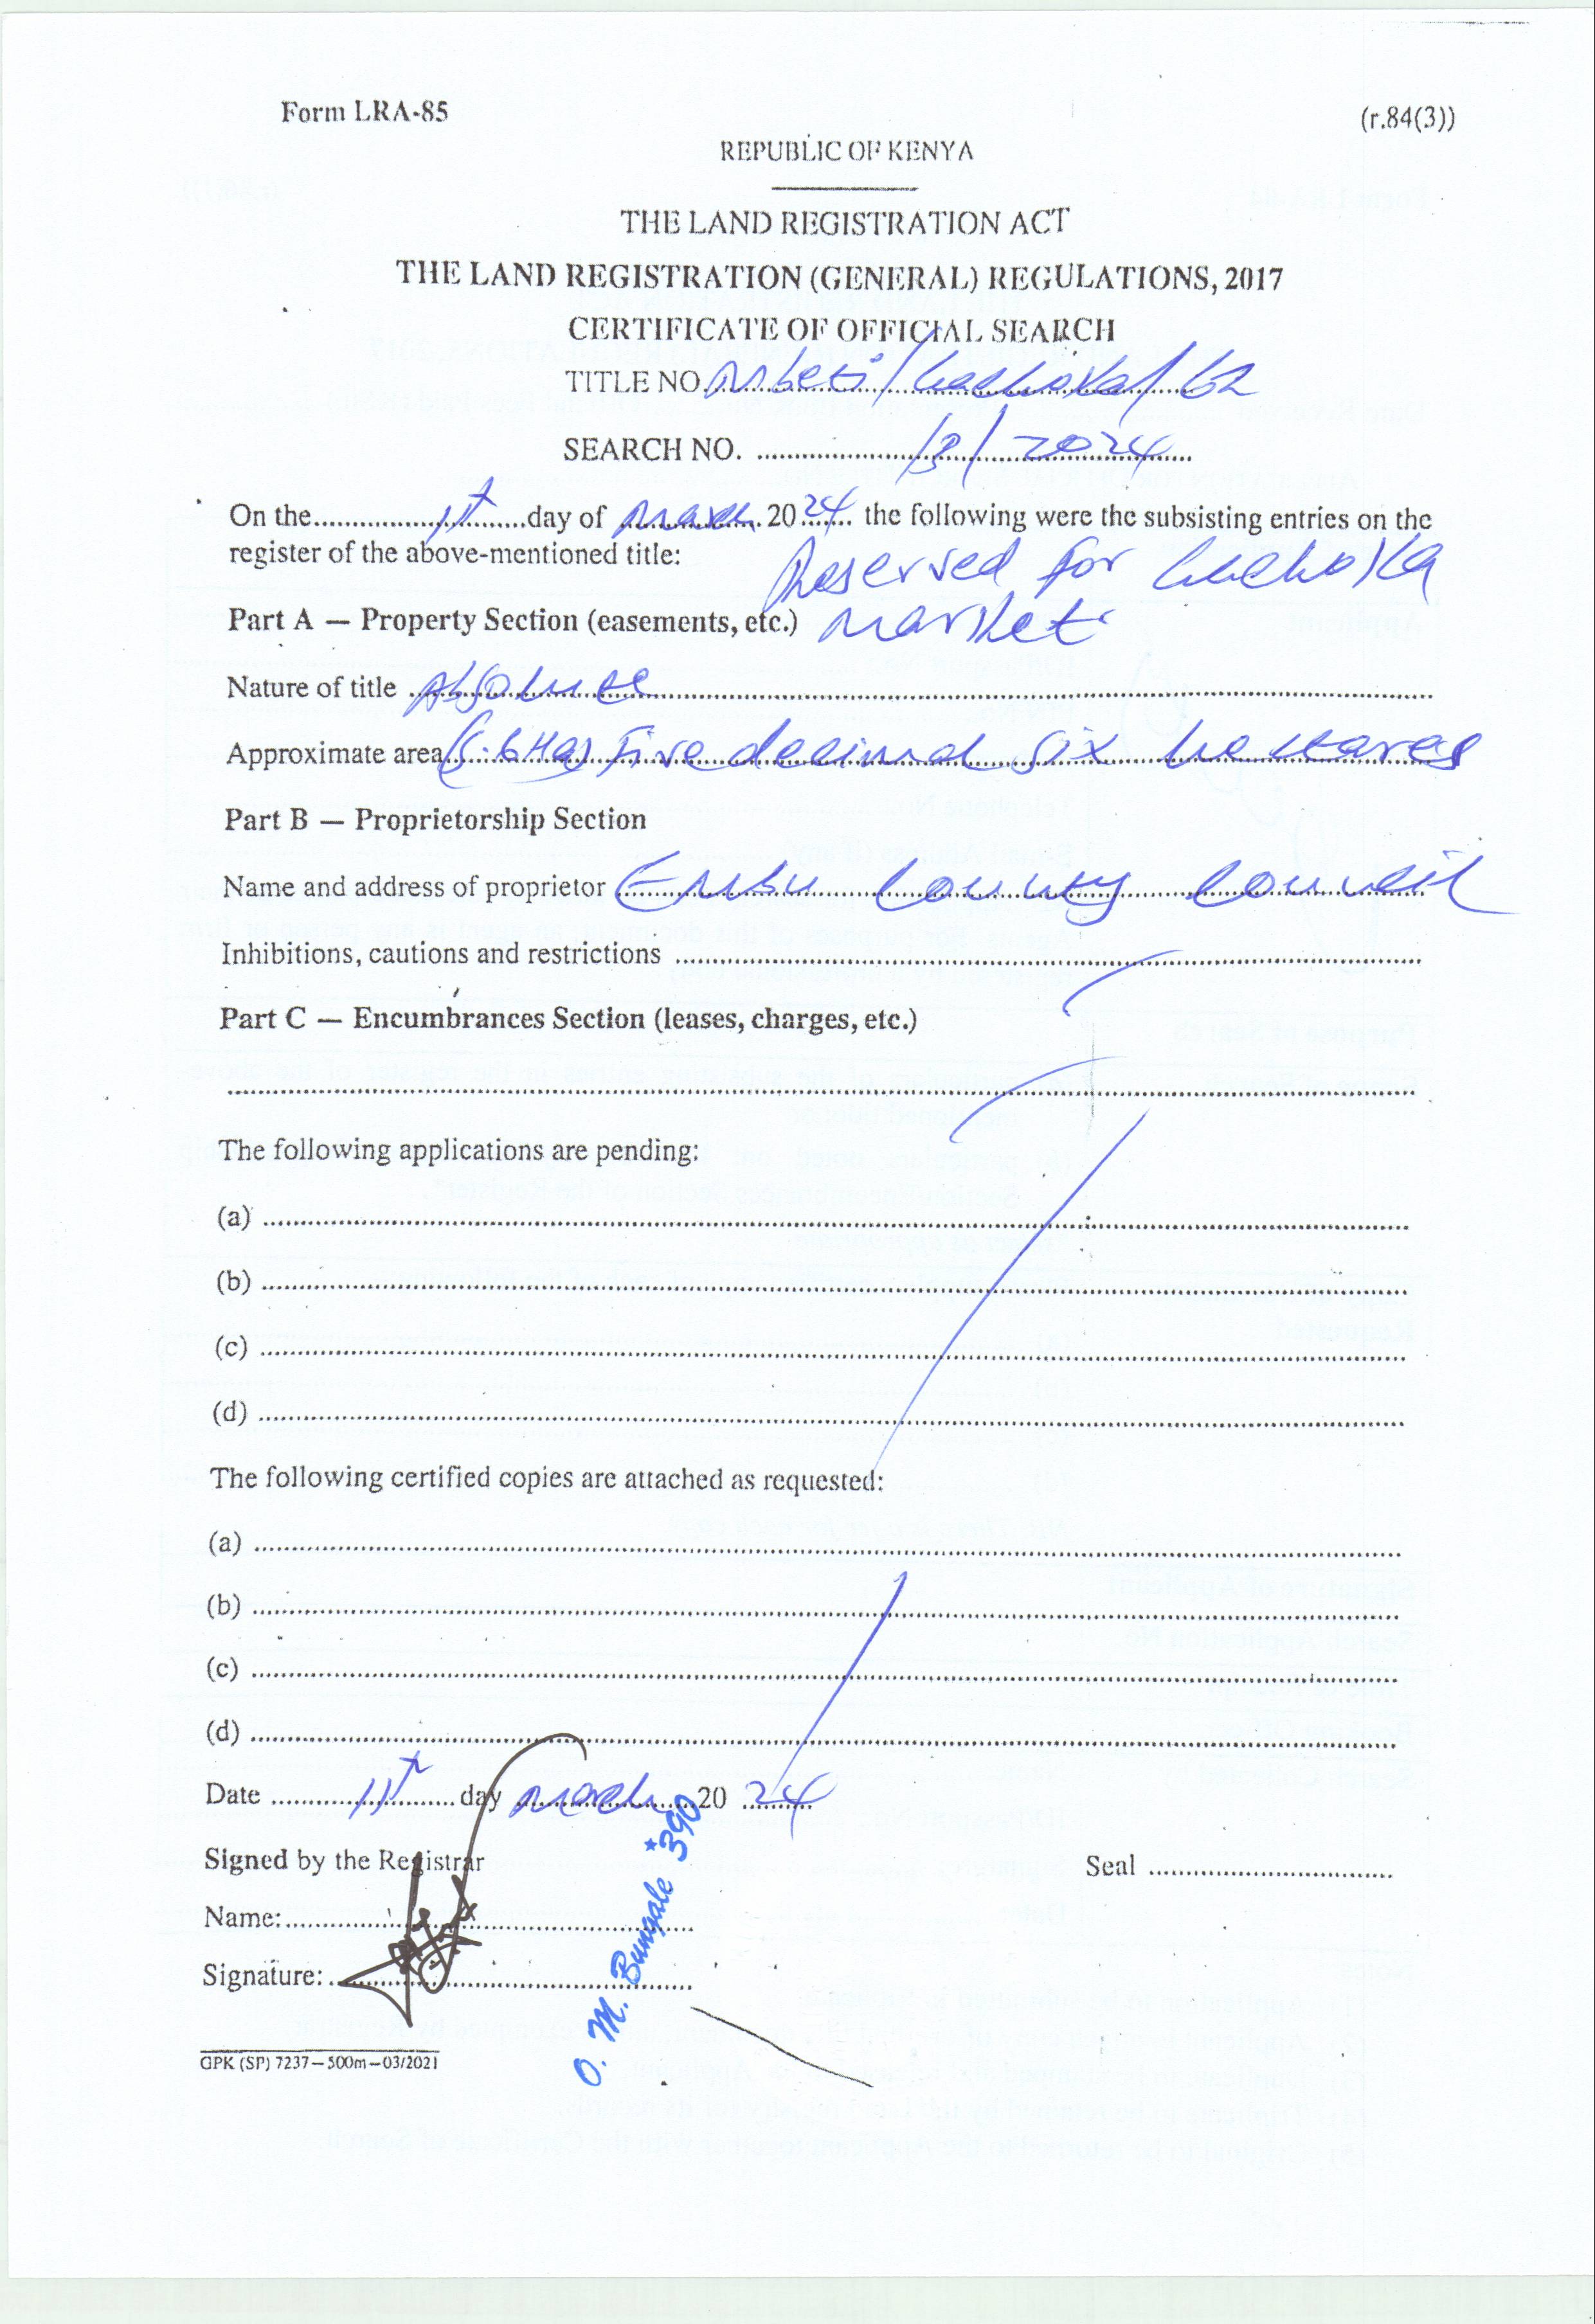 Form LRA-85
(r.84(3))
REPUBLIC OF KENYA
THE LAND REGISTRATION ACT
THE LAND REGISTRATION (GENERAL) REGULATIONS, 2017
CERTIFICATE OF OFFICIAL SEARCH
TITLE NO. Mbeti/Gachoka/62
SEARCH NO. /3/2024
On the 11th day of March 2024 the following were the subsisting entries on the
register of the above-mentioned title:
Reserved for Gachoka
Part A — Property Section (easements, etc.) Market
Nature of title Absolute
Approximate area (5.6Ha) Five decimal six hectares
Part B — Proprietorship Section
Name and address of proprietor Embu County Council
Inhibitions, cautions and restrictions
Part C — Encumbrances Section (leases, charges, etc.)
The following applications are pending:
(a)
(b)
(c)
(d)
The following certified copies are attached as requested:
(a)
(b)
(c)
(d)
Date 11th day March 2024
Signed by the Registrar
Seal
Name:
Signature:
O. M. Bungale *390
GPK (SP) 7237—500m—03/2021